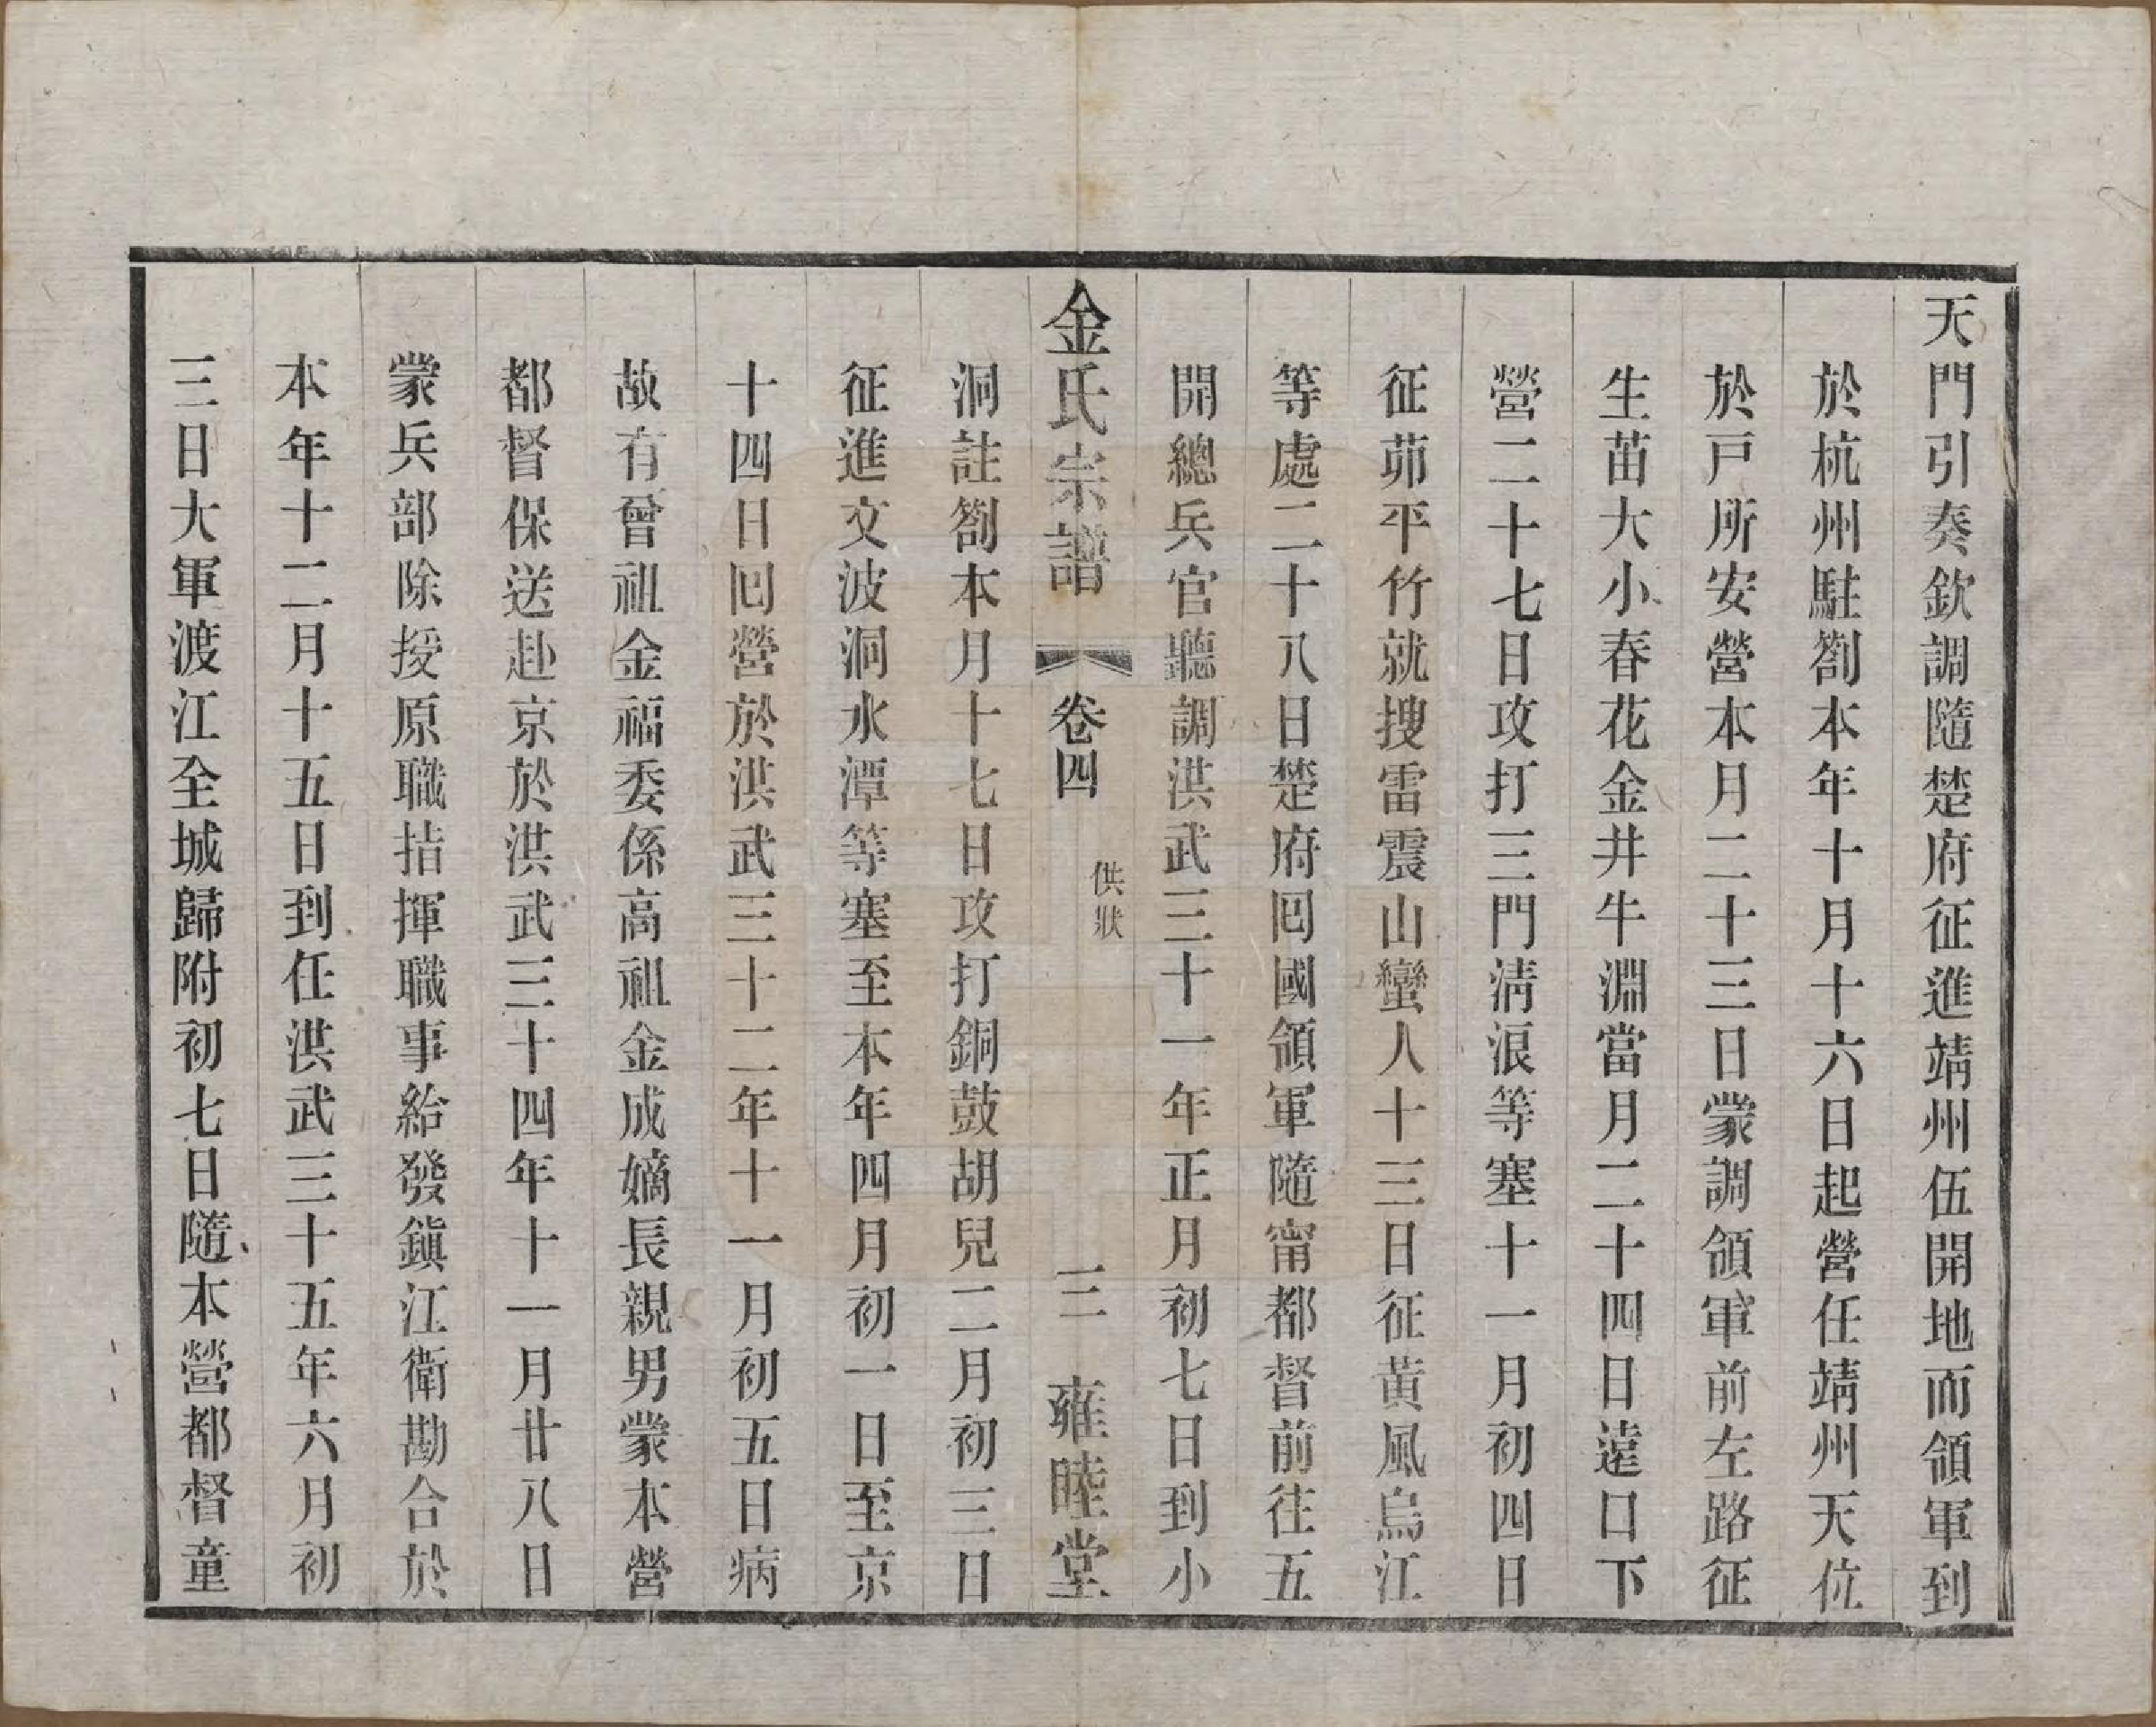 天門引奏欽調隨楚府征進靖州伍開地而領軍到
於杭州駐劄本年十月十六日起營任靖州天位
於戸所安營本月二十三日蒙調領軍前左路征
生苗大小春花金井牛淵當月二十四日遠口下
營二十七日攻打三門淸浪等塞十一月初四日
征茆平竹就搜雷震山蠻人十三日征黃風烏江
等處二十八日楚府囘國領軍隨甯都督前往五
開總兵官聽調洪武三十一年正月初七日到小
金氏宗譜
卷四
供狀
三
雍睦堂
洞註劄本月十七日攻打銅鼓胡兒二月初三日
征進文波洞水潭等塞至本年四月初一日至京
十四日囘營於洪武三十二年十一月初五日病
故有曾祖金福委係高祖金成嫡長親男蒙本營
都督保送赴京於洪武三十四年十一月廿八日
蒙兵部除授原職拮揮職事給發鎭江衛勘合於
本年十二月十五日到任洪武三十五年六月初
三日大軍渡江全城歸附初七日隨本營都督童